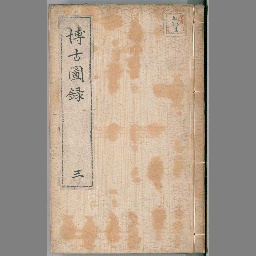 博古圖錄
三